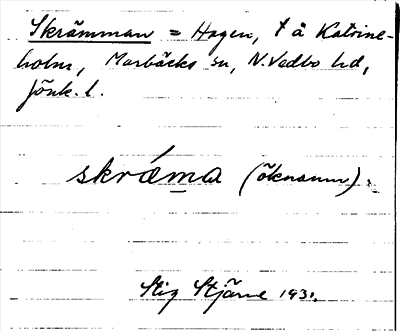 Skrämman = Hagen, t å Katrine-
holm, Marbäcks sn, N. Vedbo hd,
Jönk. l.
skrǽma (öknamn).
Stig Stjärne 1931.